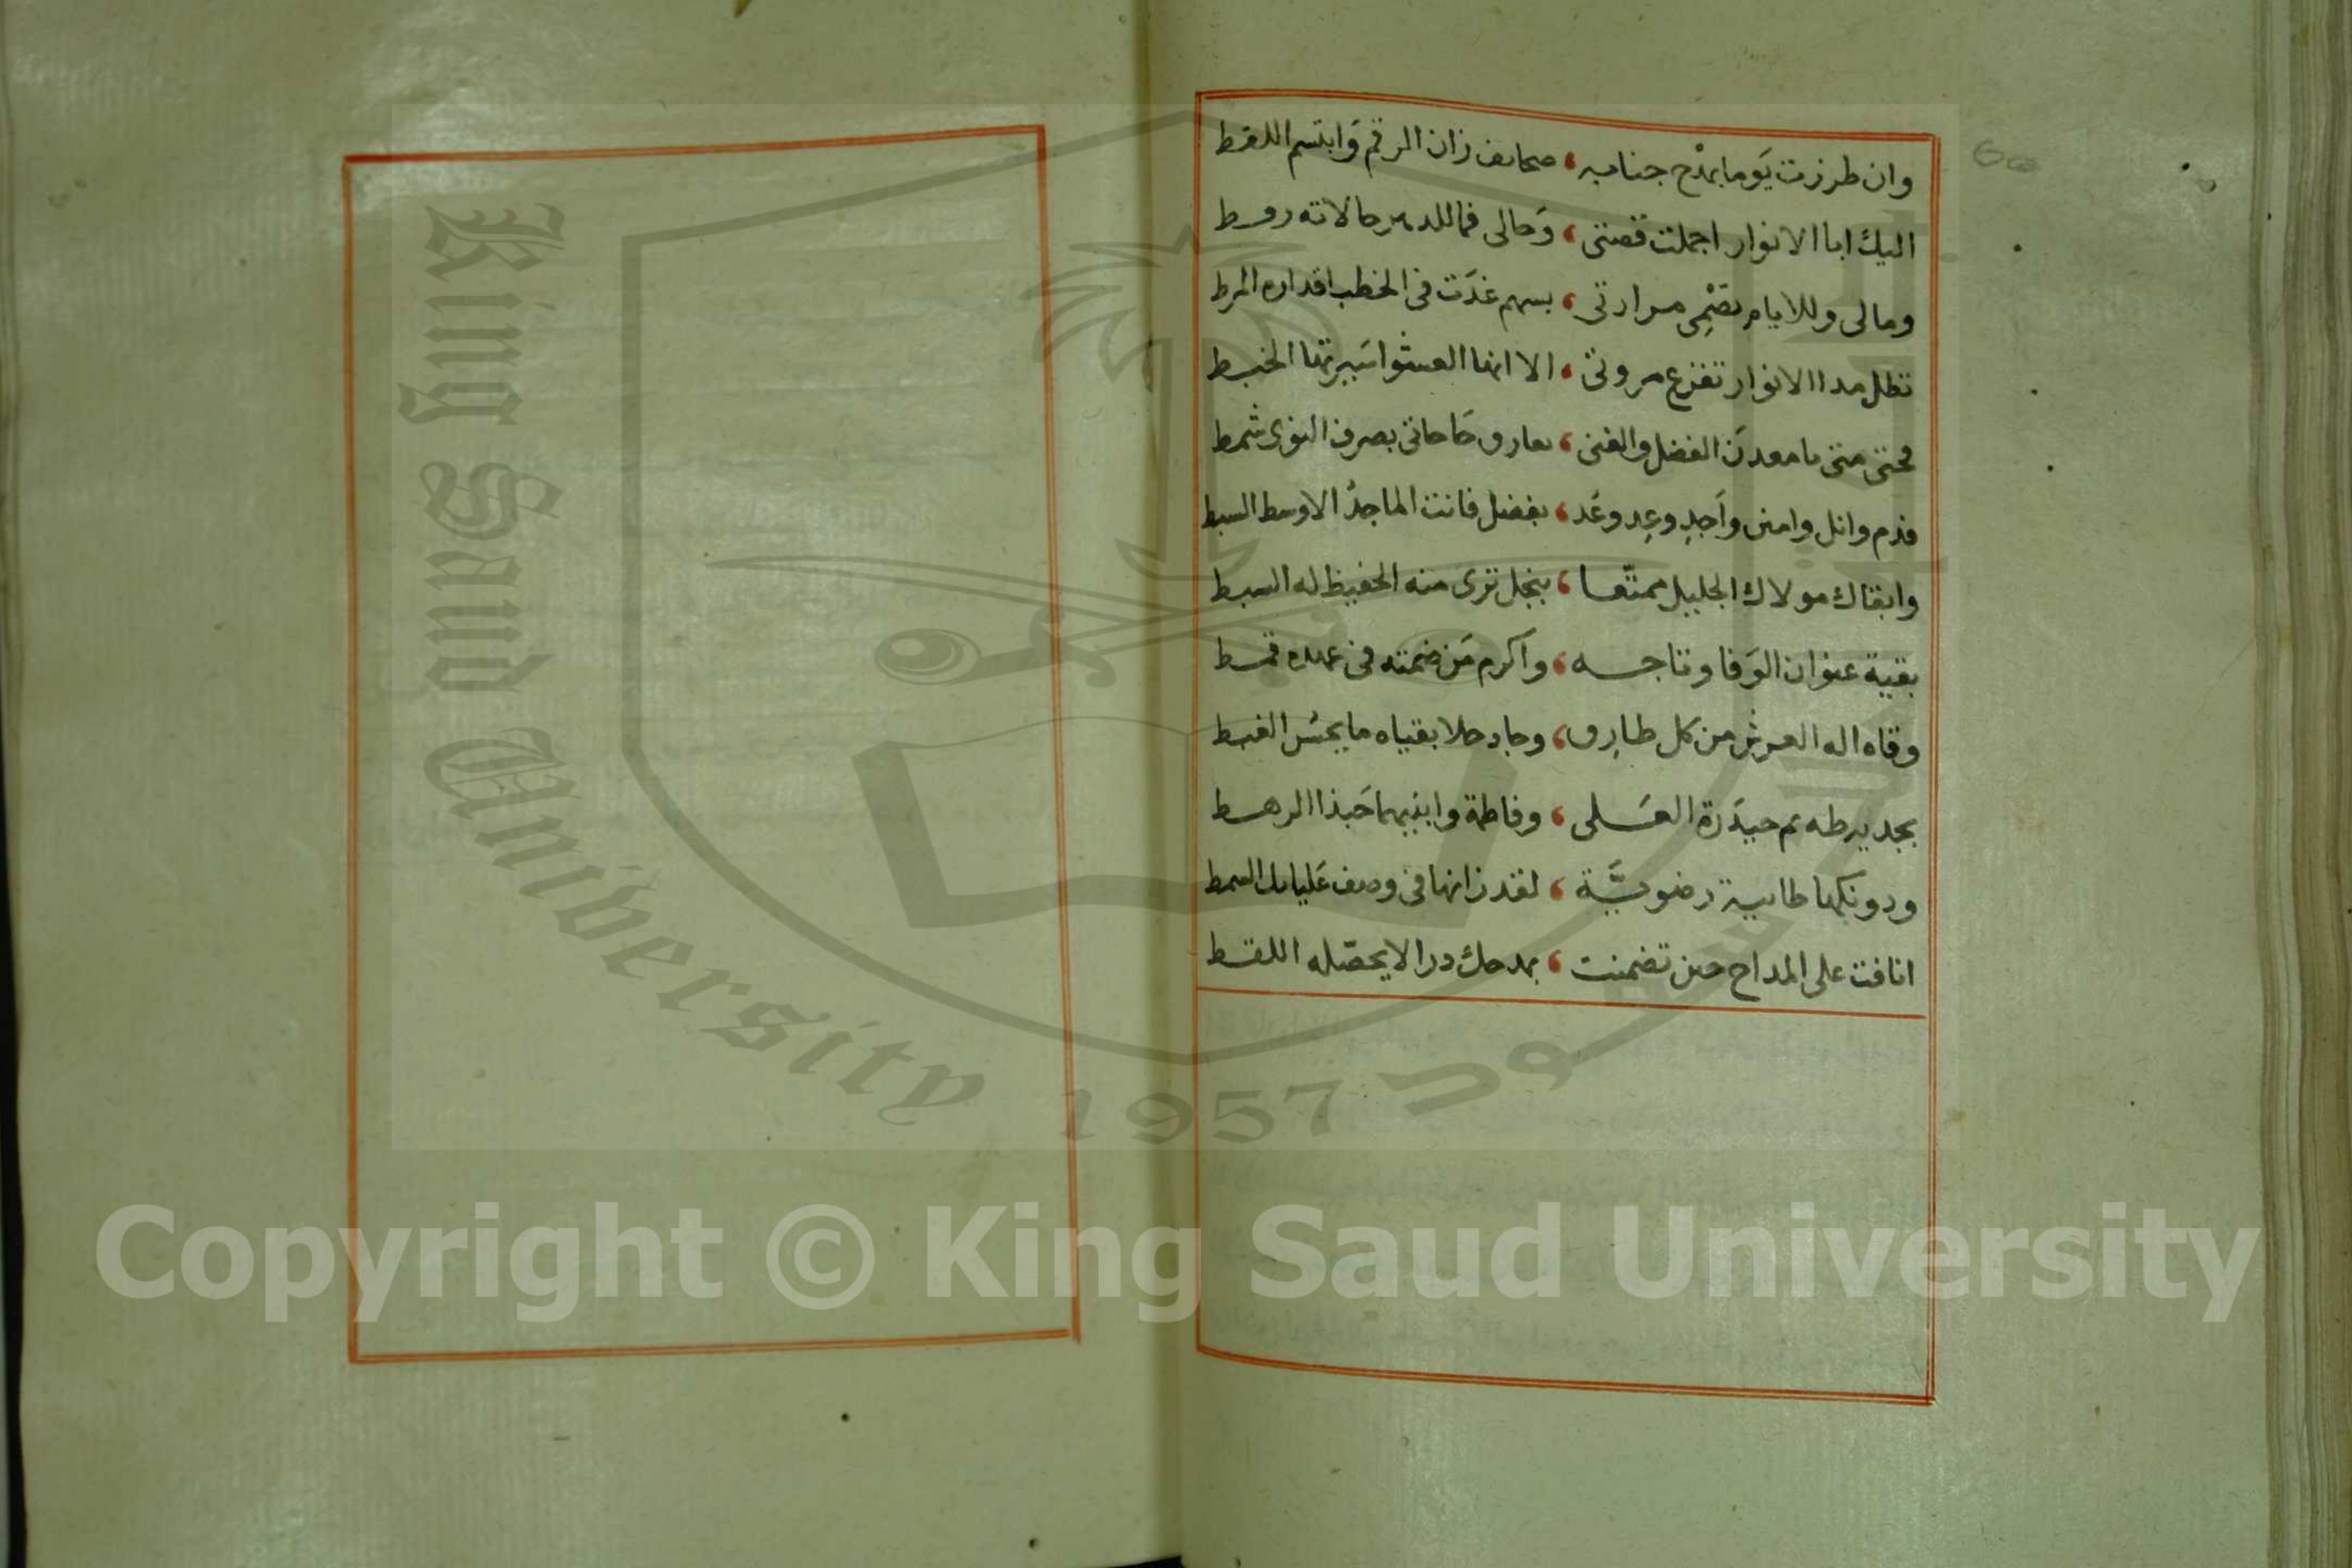 وان طرزت يَوما بمدْح جنابه ، صحايف زان الرقم وَابتسم اللقط
اليك ابا الانوار اجملت قصتى ، وَحالى فما للدهر حالاته ربط
ومالى وللايام تصْمِى مرارتى ، بسهم غدَت فى الخطب اقداره المرط
تظل مدا الانوار تقرع مروتى ، الا انها العشوا سَيرتها الخبط
فحتى متى يا معدن الفضل والغنى ، حَاجاتى بصرف النوى شمط
فدم وانل وامنن وَاَجدِ وعِد وعُد ، بفضل فانت الماجدُ الاوسط السبط
وابقاك مولاك الجليل ممتّعا ، بنجل ترى منه الحفيظ له السبط
بقية عنوان الوَفا وتاجه ، واكرم مَن ضمته فى عهده قمط
وقاه اله العرش من كل طارِق ، وحاد حلا بقياه ما يحسُن الغبط
بجديه طه ثم حيدَرة العَلى ، وفاطمة وابنيهما حَبذا الرهط
ودونكها طابية رضويَّة ، لقد زانها فى وصف عَلياىك السمط
انافت على المداح حين تضمنت ، بمدحك درا لا يحصّله اللقط
King Saud University
1957
Copyright © King Saud University